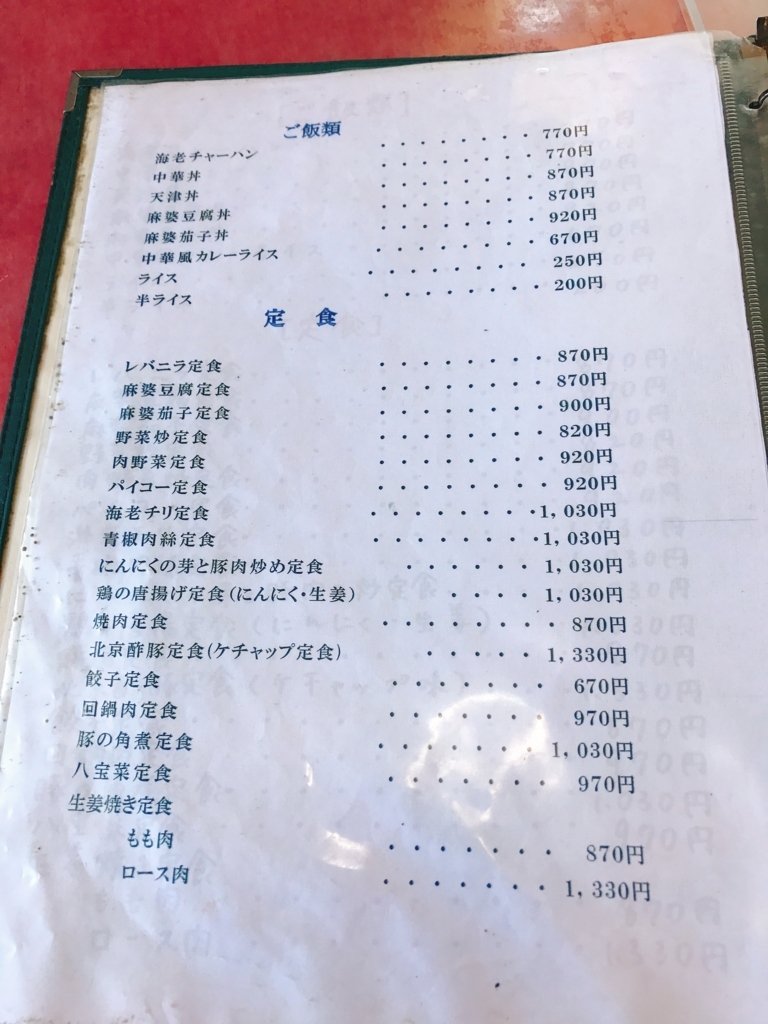 ご飯類
海老チャーハン ・・・・・・・・ 770円
中華丼 ・・・・・・・・ 770円
天津丼 ・・・・・・・・ 870円
麻婆豆腐丼 ・・・・・・・・ 870円
麻婆茄子丼 ・・・・・・・・ 920円
中華風カレーライス ・・・・・・・ 670円
ライス ・・・・・・・・ 250円
半ライス ・・・・・・・・ 200円
定 食
レバニラ定食 ・・・・・・・・ 870円
麻婆豆腐定食 ・・・・・・・・ 870円
麻婆茄子定食 ・・・・・・・・ 900円
野菜炒定食 ・・・・・・・・ 820円
肉野菜定食 ・・・・・・・・ 920円
パイコー定食 ・・・・・・・・ 920円
海老チリ定食 ・・・・・・・・・1,030円
青椒肉絲定食 ・・・・・・・・・1,030円
にんにくの芽と豚肉炒め定食 ・・・・・・ 1,030円
鶏の唐揚げ定食(にんにく・生姜) ・・・・・ 1,030円
焼肉定食 ・・・・・・・・ 870円
北京酢豚定食(ケチャップ定食) ・・・・・ 1,330円
餃子定食 ・・・・・・・・ 670円
回鍋肉定食 ・・・・・・・・ 970円
豚の角煮定食 ・・・・・・・・ 1,030円
八宝菜定食 ・・・・・・・・ 970円
生姜焼き定食
もも肉 ・・・・・・・・ 870円
ロース肉 ・・・・・・・・ 1,330円